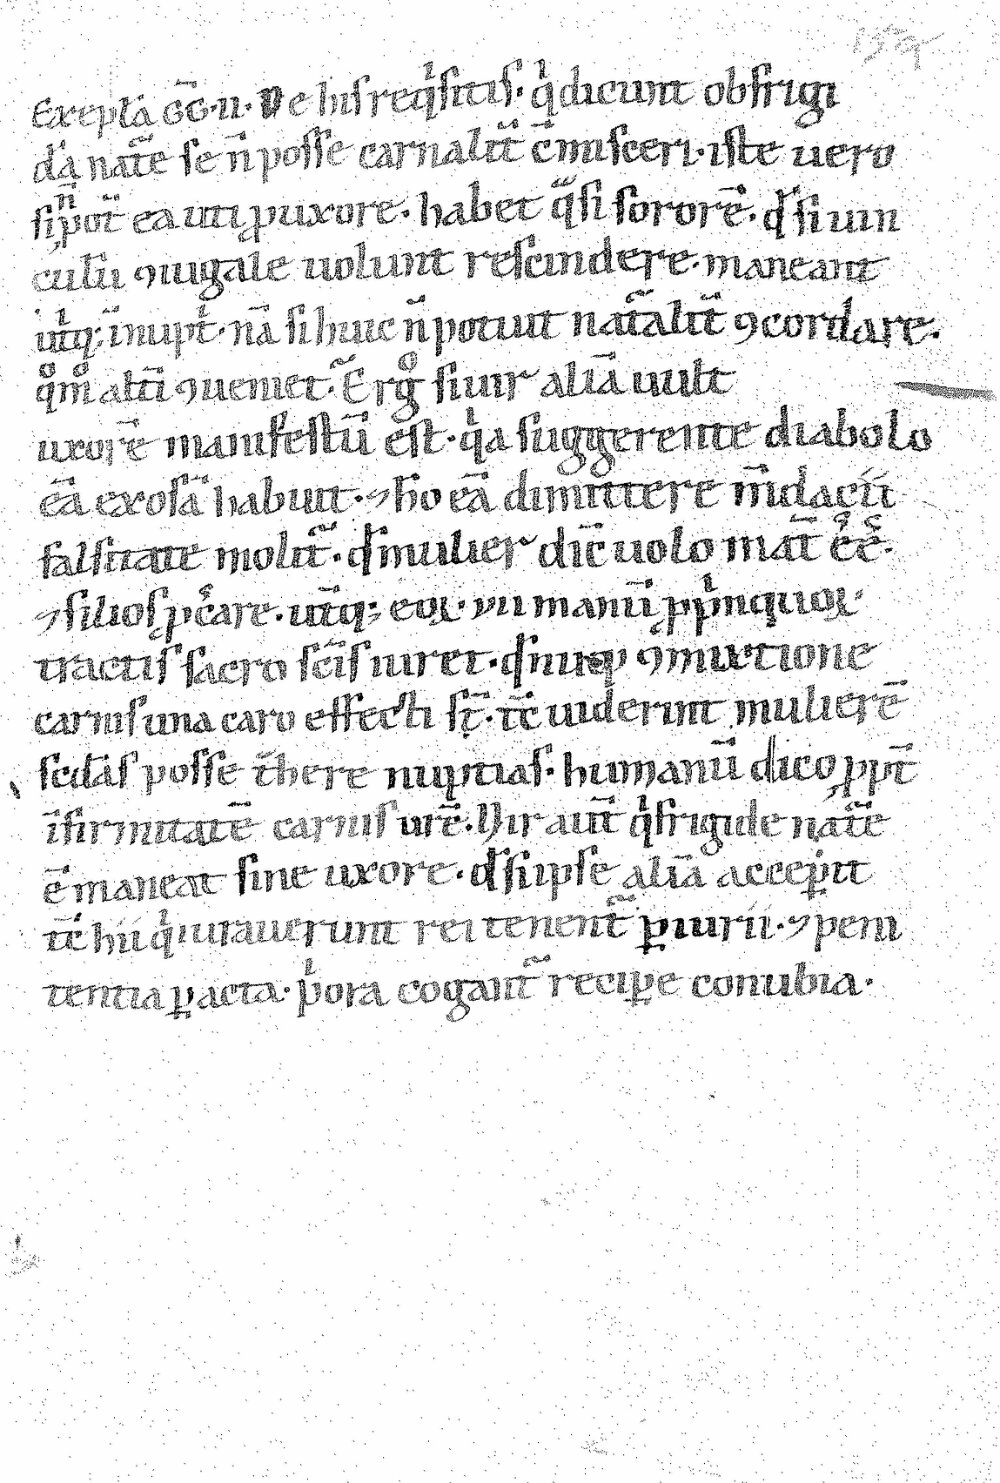 Exẽpla GG̃·ii· De his reqͥsitis· qͥ dicunt ob frigi
dã nat̃e se ñ posse carnalit̃ c̃misceri· iste uero
si ñ pot̃ ea uti ꝓ uxore· habet q̃si sororẽ· qđ si uin
culũ ꝯiugale uolunt rescindere· maneant
ut̃q; ĩnupt̃· nã si huic ñ potuit nat̃alit̃ ꝯcordare·
qͦmͦ alt̃i ꝯueniet· Ergͦ si uir aliã uult
uxorẽ manifestũ est· qͥa suggerente diabolo
eã exosã habuit· ⁊ ħo eã dimittere m̃dacii
falsitate molit̃· qđ si mulier dic̃ uolo mat̃ ee̅·
⁊ filios ꝓc̃are· ut̃q; eoꝝ· vii manũ ꝓpͥnquoꝝ
tractis sacro sc̃is iuret· qđ nũqͣ ꝑ ꝯmixtione
carnis una caro effecti st̃· tc̃ uiderint mulierẽ
sed̃as posse t̃here nuptias· humanũ dico ꝓpt̃
ĩfirmitatẽ carnis urẽ· Vir aut̃ qͥ frigide nat̃e
ẽ maneat sine uxore· qđ si ipse aliã acceꝑit
tc̃ hii qͥ iurauerunt rei tenent̃ ꝑiurii· ⁊ peni
tentia ꝑacta· pͥora cogant̃ reciꝑe conubia·